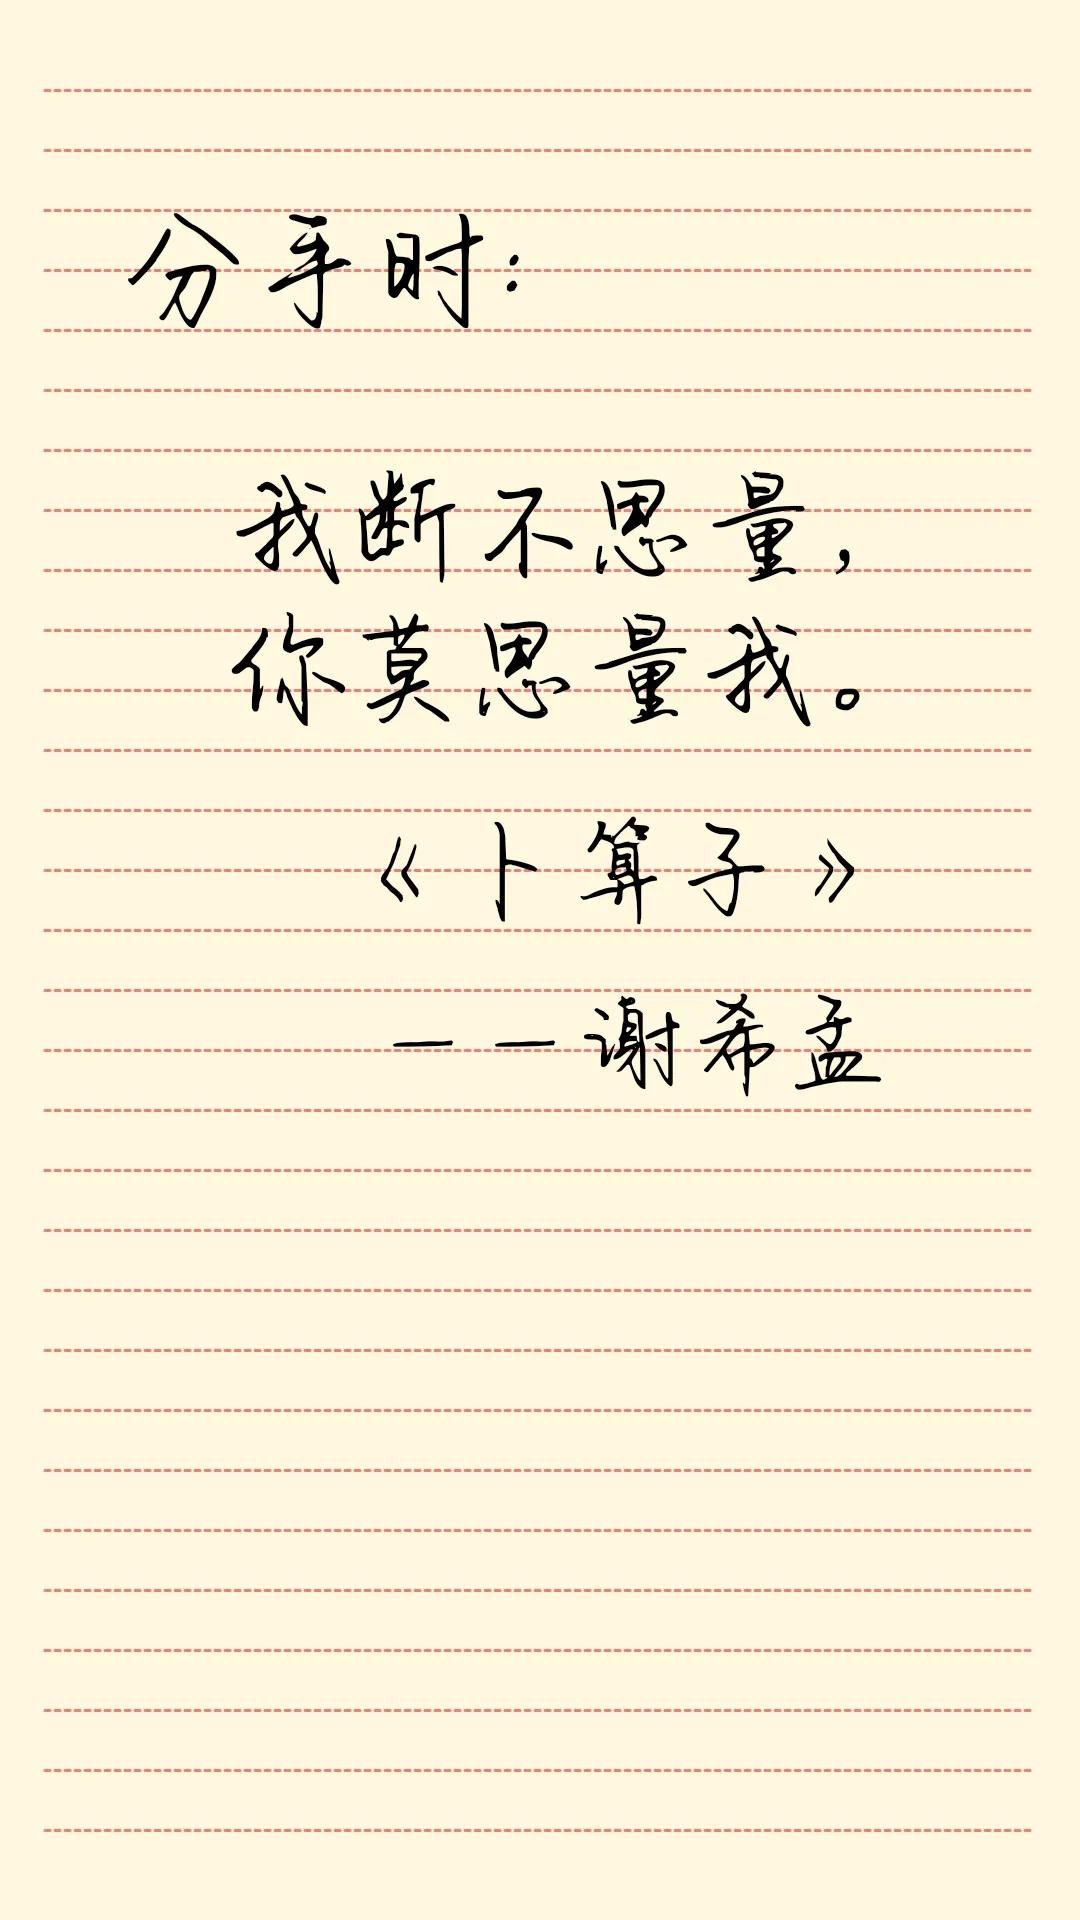 分手时：
我断不思量，
你莫思量我。
《卜算子》
——谢希孟